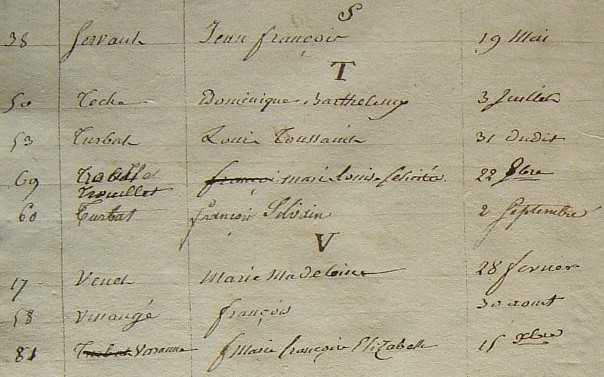 S
38 Servault Jean françois 19 Mai
T
50 Teche Dominique Barthelemy 3 Juillet
53 Turbat Louis Toussaint 31 dudit
69 françoi marie louise félicité 22 8bre
Trouillet
60 Turbat françois Silvain 2 Septembre
V
17 Venet Marie Madeloine 28 fevrier
58 Venangé françois 30 aout
81 Turbat Voranne Marie françoise Elizabeth 15 xbre